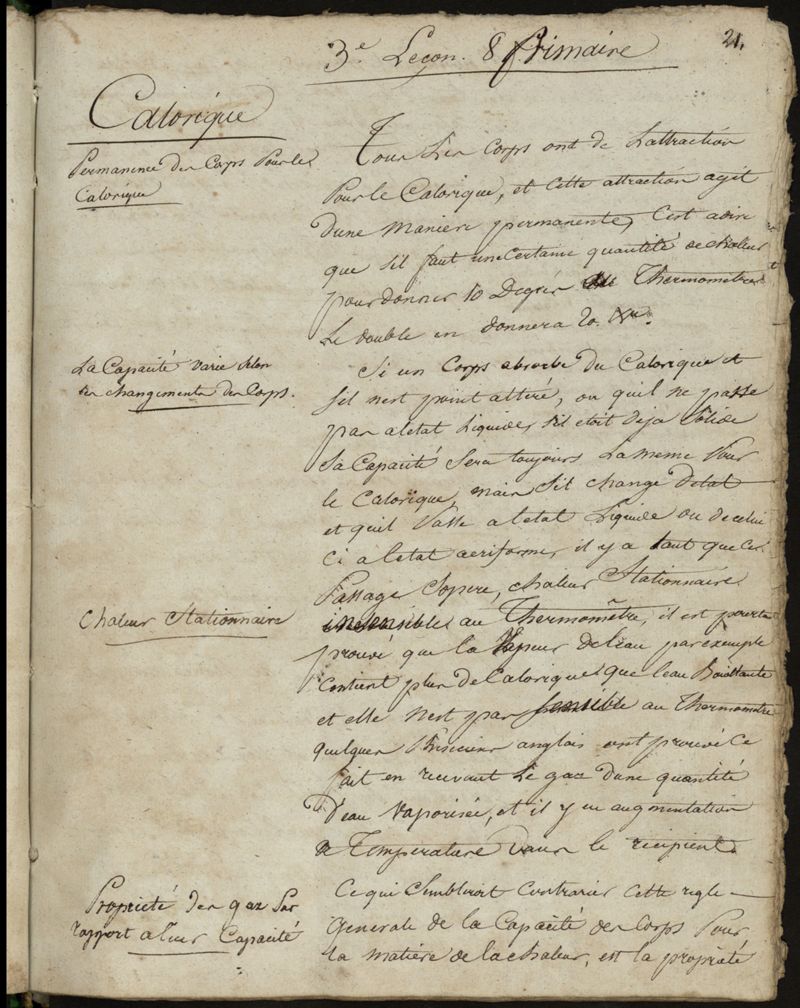 21.
3e Leçon. 8 frimaire
Calorique
Permanence des Corps Pour le
Calorique
Tous Les Corps ont de Lattraction
Pour le Calorique, et cette attraction agit
dune maniere permanente, Cest adire
que sil faut une certaine quantité de chaleur
pour donner 10 Degrés au Thermometre
Le double en donnera 20.
La Capacité varie selon
les changements des Corps.
Si un Corps absorbe du Calorique et
sil nest point altéré, ou quil ne passe
pas a letat Liquide, sil etoit deja solide
sa Capacité sera toujours la meme Pour
le Calorique, mais sil change detat
et quil Passe a letat Liquide ou de celui
ci a letat aeriforme, il y a tant que ce
Passage sopere, chaleur Stationnaire
Chaleur Stationnaire
insensible au Thermomêtre, il est pourtant
prouvé que la vapeur de leau par exemple
contient plus de Calorique que leau Bouillante
et elle nest pas sensible au Thermometre
quelques Phisiciens anglais ont prouvé ce
fait en recevant le gaz dune quantité
D'eau vaporisée, et il y eu augmentation
de Température dans le recipient.
Propriété des gaz Par
rapport a leur Capacité
Ce qui sembleroit contrarier cette regle
Generale de la Capacité des Corps Pour
la matiére de la chaleur, est la propriété